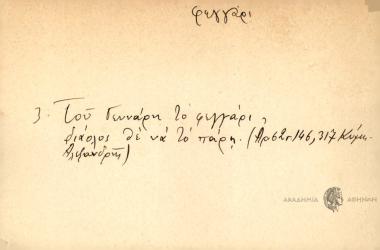 φεγγάρι
3. Τοῦ Γεννάρη τὸ φεγγάρι,
διάολος θὲ νὰ τὸ πάρῃ. (Αρ 62 146, 317 Κύμη-
Αλεξανδρῆς)
ΑΚΑΔΗΜΙΑ ΑΘΗΝΩΝ